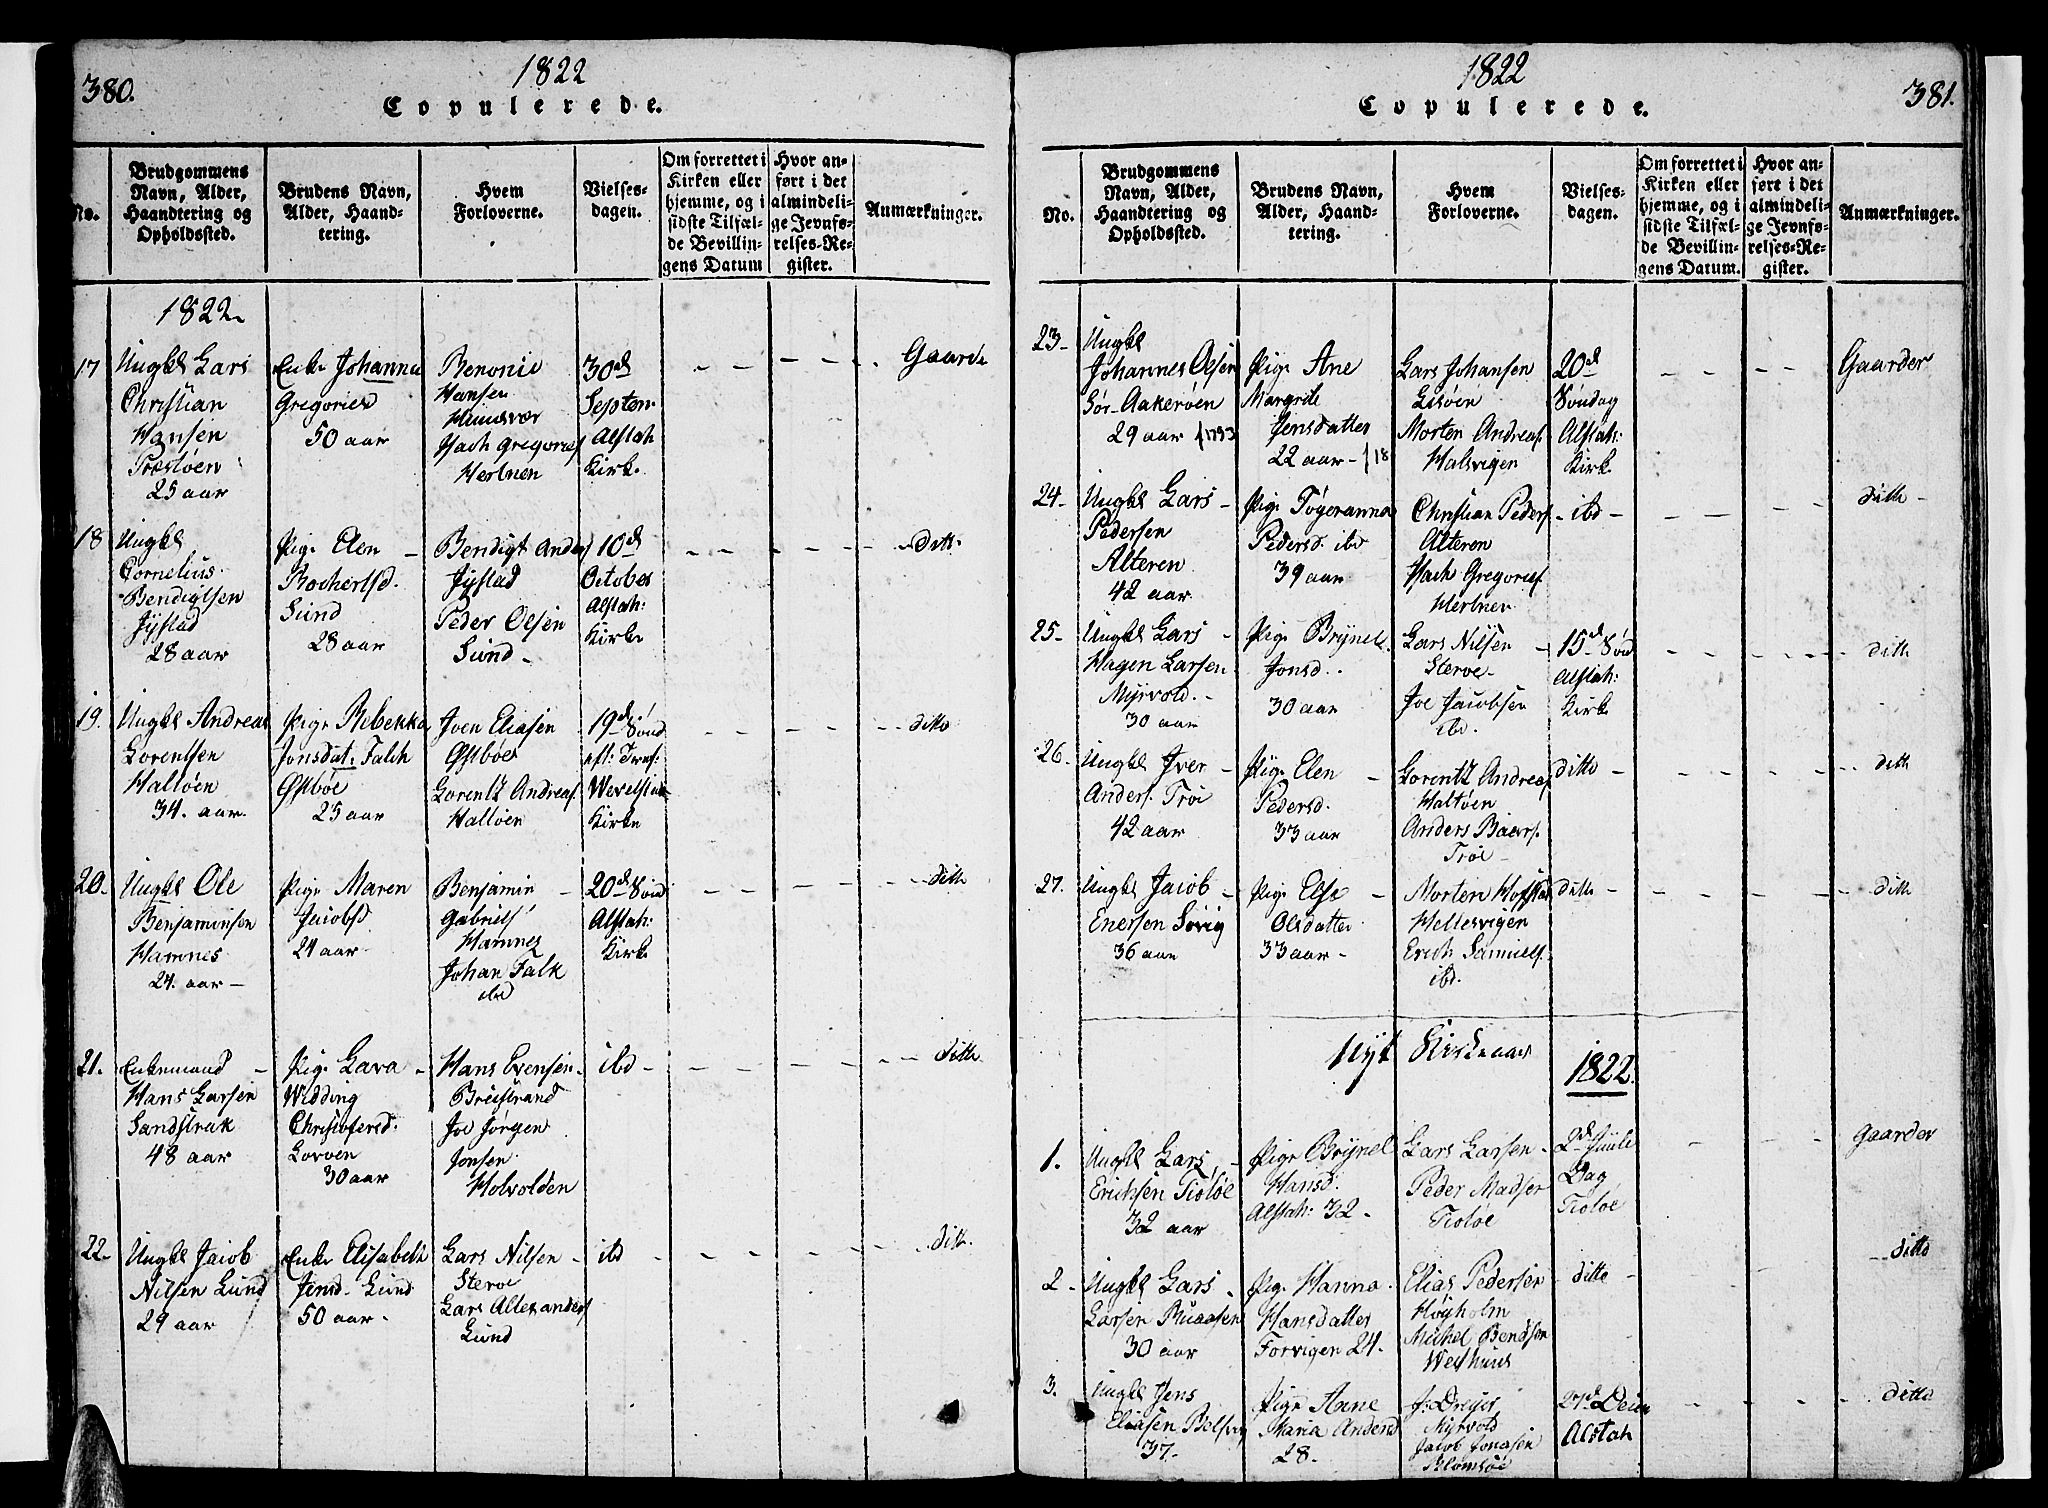 380.
1822
Copulerede.
No.
Brudgommens Navn, Alder, Haandtering og Opholdssted.
Brudens Navn, Alder, Haandtering.
Hvem Forloverne.
Vielsesdagen.
Om forrettet i Kirken eller hjemme, og i sidste Tilfælde Bevillingens Datum
Hvor anført i det almindelige Jevnførelses-Register.
Anmærkninger.
1822
17 Ungkl Lars Christian Hansen 25 aar
Enke Johanna Gregoriesd 50 aar
Benonie Hansen
Isach Gregories Herbnen
30d Septem. Alstah: Kirke.
Gaarde
18 Ungkl Cornelius Bendigtsen 28 aar
Pige Elen Sund 28 aar
Bendigt Anders
Peder Olsen Sund
10d October Alstah: Kirke
ditto
19. Ungkl Andreas Lorentsen Haltøen 34. aar.
Pige Rebekka Jonsdat: Falch Østbøe 25 aar
Jven Eliasen Østbøe
Lorentz Andreas. Haltøen
19d Sønd eft: Kirke
ditto
20. Ungkl Ole Benjaminsen Hamnes 24. aar
Pige Maren Jacobsd 24 aar
Benjamin Gabriels Hamnes
Johan Falk ibd
20d Sønd Alstah: Kirke
ditto
21. Enkemand Hans Larsen Sandstrak 48 aar
Pige Lava Widding Christofersd. 30 aar
Hans Evensen Breistrand
Joe Jørgen Jonsen Holvolden
ibd
ditto
22. Ungkl Jacob Nilsen Lund 29 aar
Enke Elisabeth Jensd Lund 50 aar
Lars Nilsen Steroe
Lars Allexanders Lund
ibd
ditto
1822
381.
Copulerede.
No.
Brudgommens Navn, Alder, Haandtering og Opholdssted.
Brudens Navn, Alder, Haandtering.
Hvem Forloverne.
Vielsesdagen.
Om forrettet i Kirken eller hjemme, og i sidste Tilfælde Bevillingens Datum.
Hvor anført i det almindelige Jevnførelses-Register.
Anmærkninger.
23 Ungkl Johannes Olsen Sør-Aakerøen 29 aar f 1793
Pige Ane Margrite Jensdatter 22 aar
Lars Johansen
Morten Andreas. Halsvigen
20d Søndag Alstah: Kirke
Gaarder
24. Ungkl Lars Pedersen Alteren 42 aar
Pige Tøgeranna Pedersd. ibd 39 aar
Christian Peders Alteren
Isach Gregories Herbnen
ibd
ditto
25. Ungkl Lars Hagen Larsen Myrvold. 30 aar
Pige Brynel Jonsd. 30 aar
Lars Nilsen Steroe
Joe Jacobsen ibd.
15d Sønd Alstah: Kirke
ditto
26. Ungkl Jver Anders. Trøe 42 aar
Pige Elen Pedersd. 33 aar
Lorentz Andreas Haltøen
Anders Baars. Trøe
ditto
ditto
27. Ungkl Jacob Enersen Søvig 36 aar
Pige Else Olsdatter 33 aar
Morten Hoffstad Hellesvigen
Erich Samuels. ibd.
ditto
ditto
Nyt Kirkeaar 1822.
1. Ungkl Lars Erichsen Tioløe 32 aar
Pige Brynel Hansd. Alstah: 32
Lars Larsen
Peder Madsen Tioløe
2d Juule Dag Tioløe
Gaarder
2 Ungkl Lars Larsen 30 aar
Pige Hanna Hansdatter Forvigen 24.
Elias Pedersen Høyholm
Michel Bendsen
ditto
ditto
3. Ungkl Jens Eliasen 37.
Pige Anne Maria Andersd 28
J: Dreyer Myrvold
Jacob Jonasen Blomsøe
27d Alstah
ditto